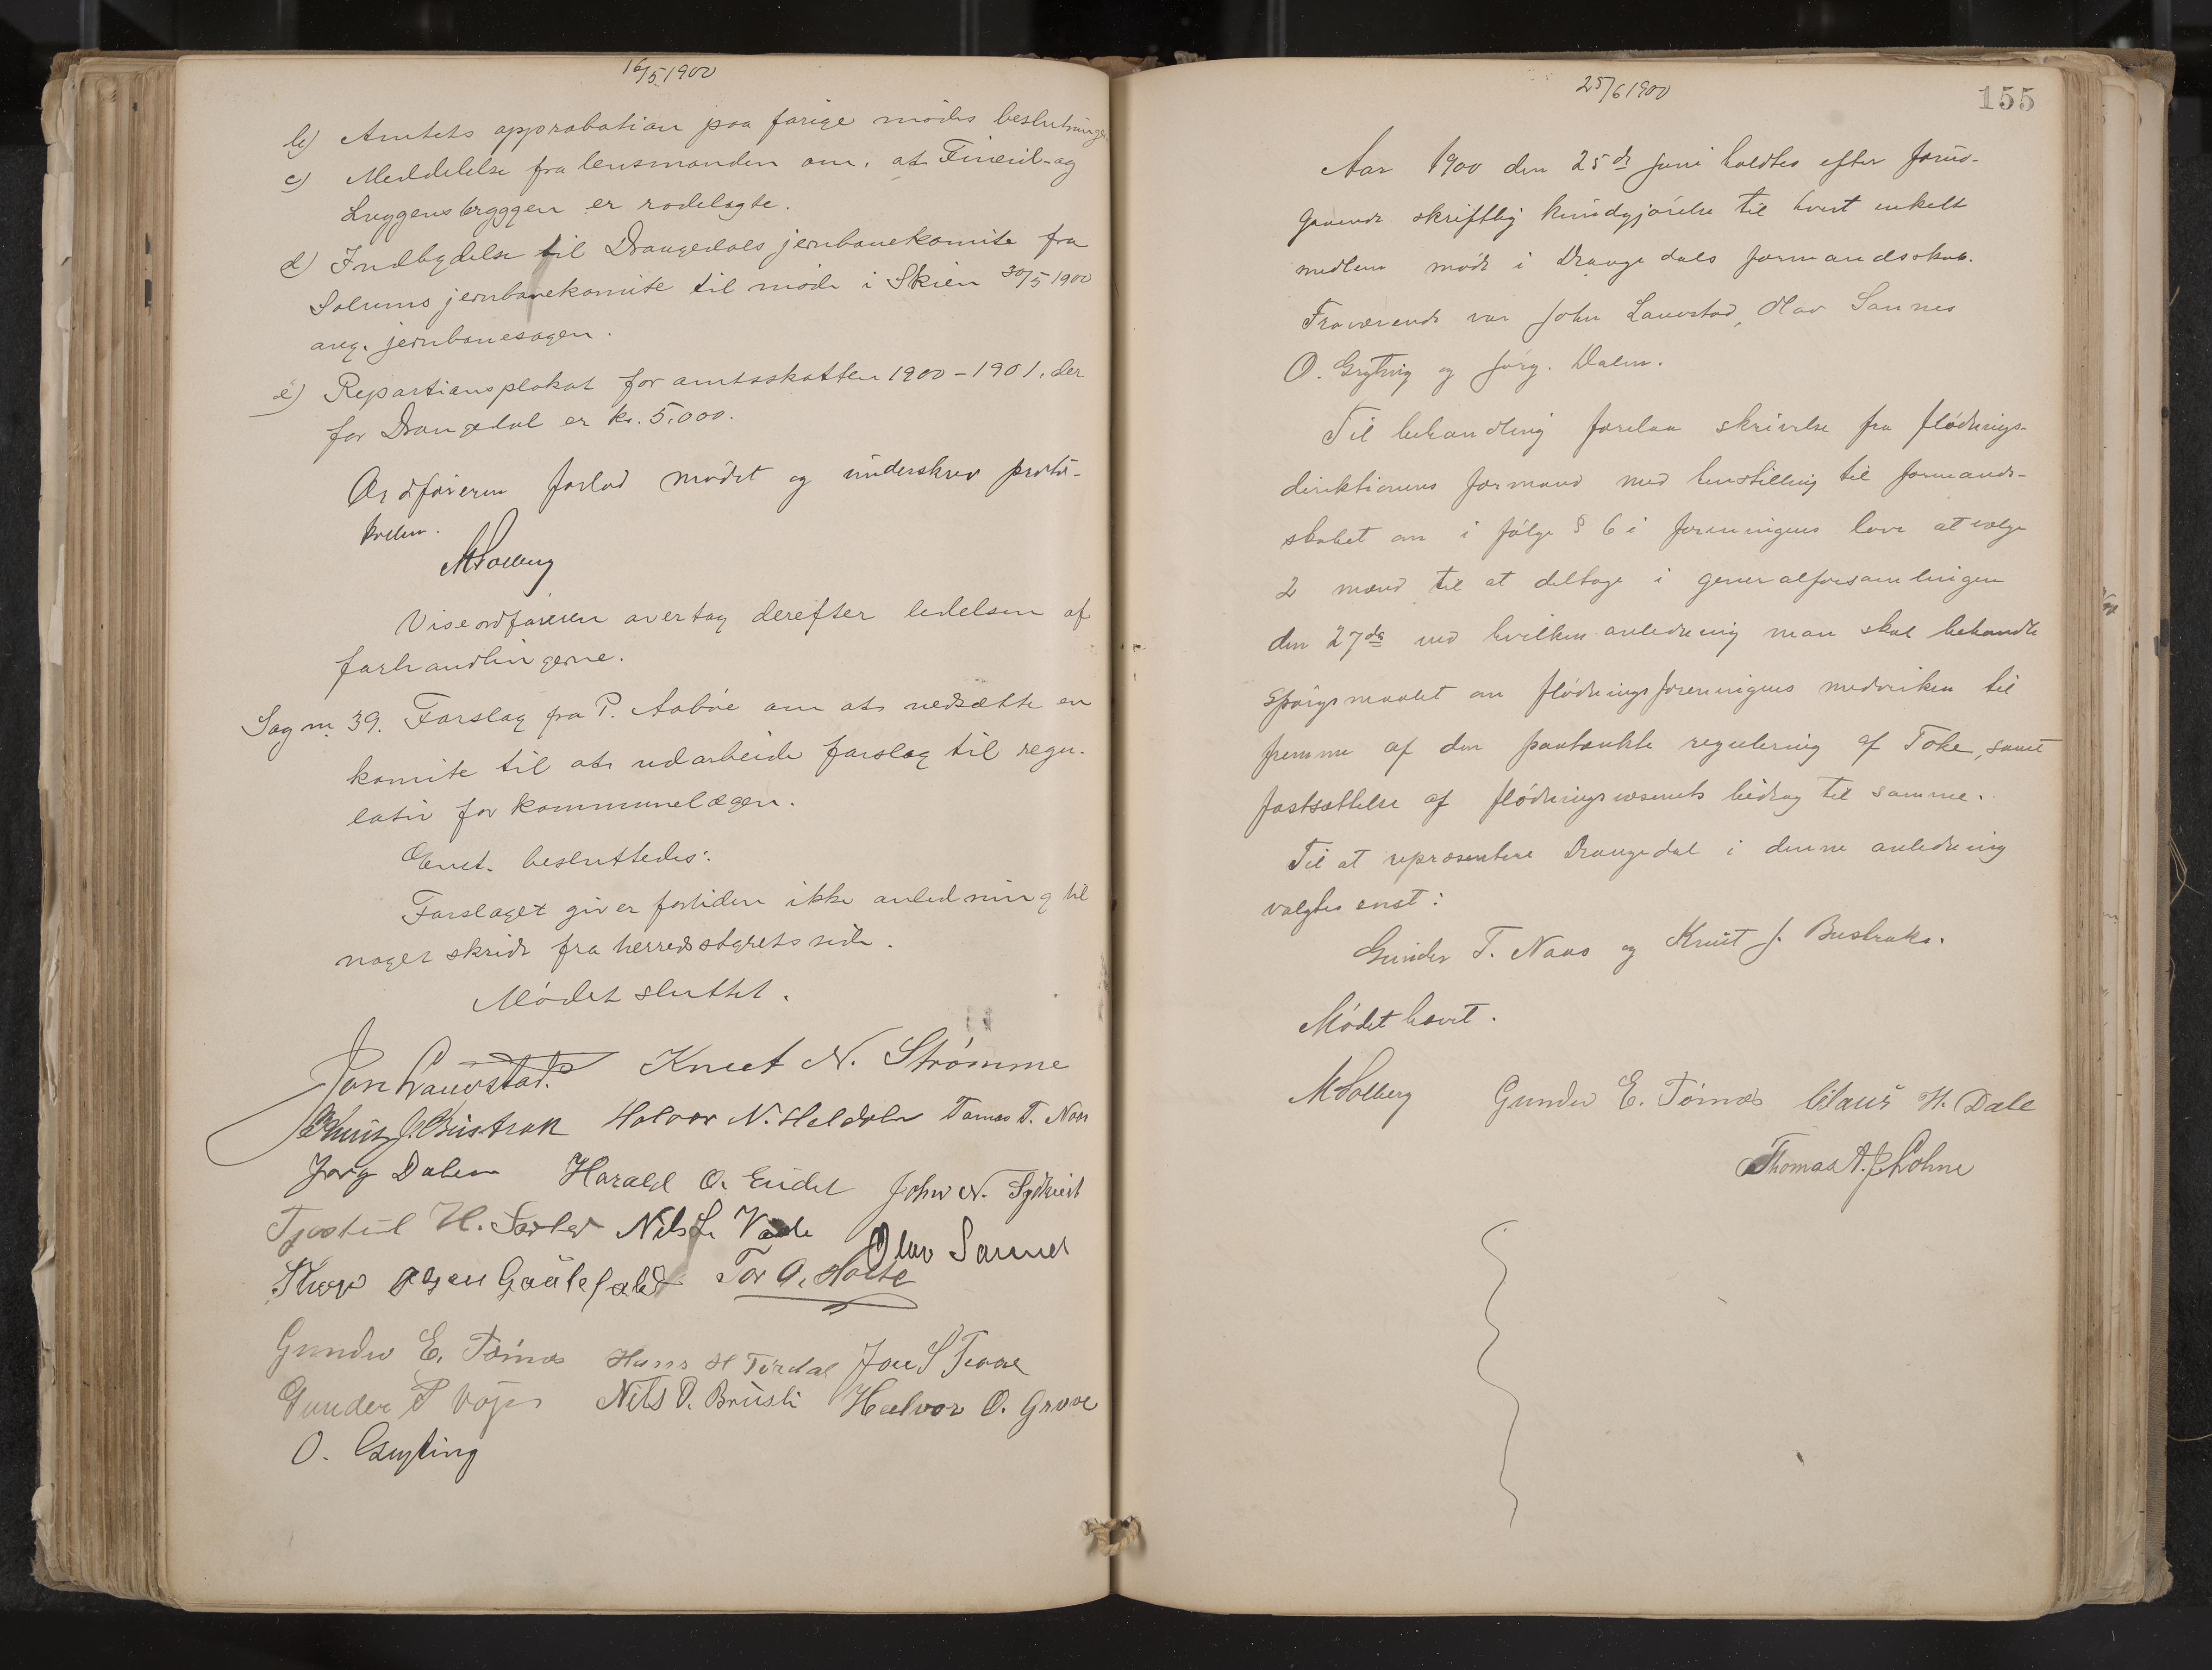 16/5 1900
b) Amtets approbation paa forige mødes beslutninger
c) Meddelelse fra lensmanden om, at og
er rodelagte.
d) Indbydelse til Drangedals jernbanekomite fra
Solums jernbanekomite til møde i Skien 30/5 1900
ang. jernbanesagen.
e) Repartionsplakat for amtsskatten 1900-1901. der
for Drangedal er kr. 5.000.
Ordføreren forlod mødet og underskrev proto-
kollen.
MSolberg
Viseordføreren overtog derefter ledelsen af
forhandlingerne.
Sag nr. 39. Forslag fra P. Aabøe om at nedsætte en
komite til at udarbeide forslag til regu-
lativ for kommunelægen.
Enst. besluttedes:
Forslaget giver fortiden ikke anledning til
noget skridt fra herredsstyrets side.
Mødet sluttet.
Jon Lauvstad. Knut N. Strømme
Knut J. Bustrak Halvor N. Heldalen Tomas T. Naas
Jørg Dalen Harald O. Eidet John N.
Tjostul H. Nils L. Olav Sannes
Olsen Gautefald Tor O. Holte
Gunder E. Tørnes Hans H Tørdal Jon S
Gunder P Nils O. Brusli Halvor O. Grove
O. Gryting
25/6 1900
155
Aar 1900 den 25de juni holdtes efter forud-
gaaende skriftlig kundgjørelse til hvert enkelt
medlem møde i Drangedals formandsskab.
Fraværende var John Lauvstad, Olav Sannes
O. Gryting og Jørg. Dalen.
Til behandling forelaa skrivelse fra flødnings-
direktionens formand med henstilling til formand-
skabet om i følge § 6 i foreningens love at vælge
2 mænd til at deltage i generalforsamlingen
den 27de ved hvilken anledning man skal behandle
spørgsmaalet om flødningsforeningens medvirken til
fremme af den paatænkte regulering af Toke, samt
fastsættelse af flødningsvæsenets bidrag til samme.
Til at repræsentere Drangedal i denne anledning
valgtes enst:
Gunder T. Naas og Knut J. Bustrak.
Mødet hævet.
MSolberg Gunder E. Tørnes Claus H. Dale
Thomas A. J. Lohne